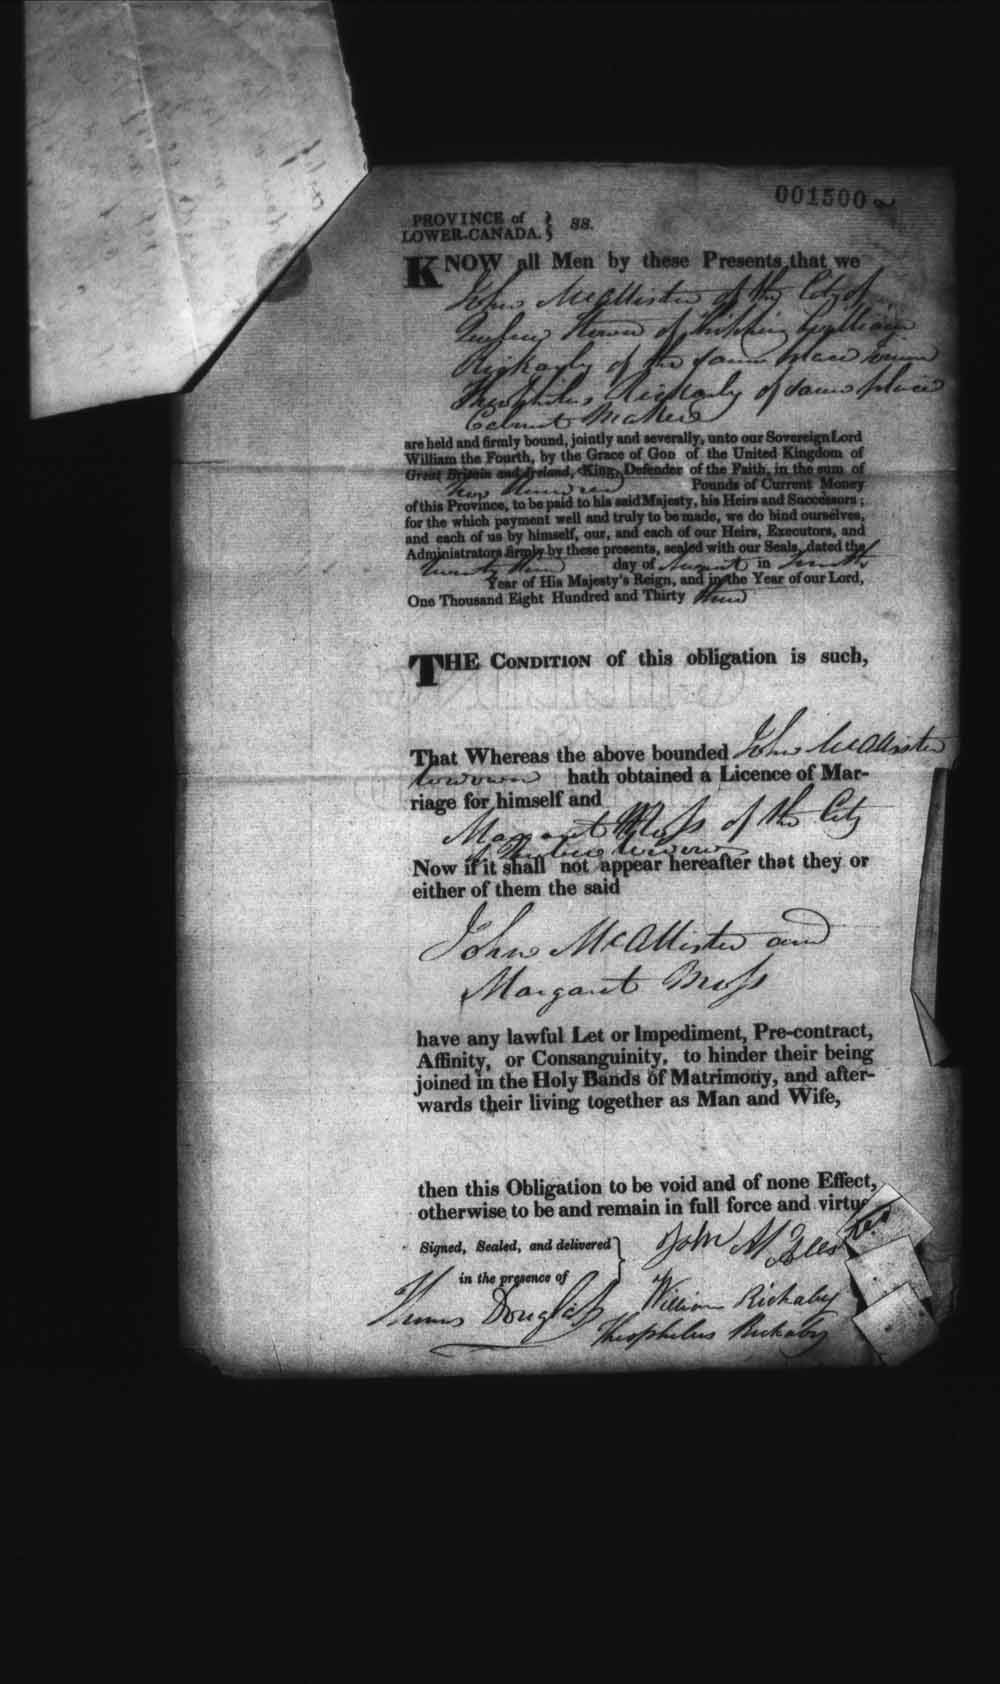 001500
PROVINCE of
LOWER-CANADA. } ss.
KNOW all Men by these Presents, that we
John McAllister of the City of
Quebec of William
Rickaby of the same place
Theophilus Rickaby of same place
Cabinet Maker
are held and firmly bound, jointly and severally, unto our Sovereign Lord
William the Fourth, by the Grace of GOD of the United Kingdom of
Great Britain and Ireland, King, Defender of the Faith, in the sum of
two hundred Pounds of Current Money
of this Province, to be paid to his said Majesty, his Heirs and Successors;
for the which payment well and truly to be made, we do bind ourselves,
and each of us by himself, our, and each of our Heirs, Executors, and
Administrators firmly by these presents, sealed with our Seals, dated the
twenty third day of August in fourth
Year of His Majesty's Reign, and in the Year of our Lord,
One Thousand Eight Hundred and Thirty three
THE CONDITION of this obligation is such,
That Whereas the above bounded John McAllister
widower hath obtained a Licence of Mar-
riage for himself and
Margaret Moss of the City
of Quebec widow
Now if it shall not appear hereafter that they or
either of them the said
John McAllister and
Margaret Moss
have any lawful Let or Impediment, Pre-contract,
Affinity, or Consanguinity, to hinder their being
joined in the Holy Bands of Matrimony, and after-
wards their living together as Man and Wife,
then this Obligation to be void and of none Effect,
otherwise to be and remain in full force and virtue
Signed, Sealed, and delivered } John
in the presence of
William Rickaby
Douglass
Theophilus Rickaby